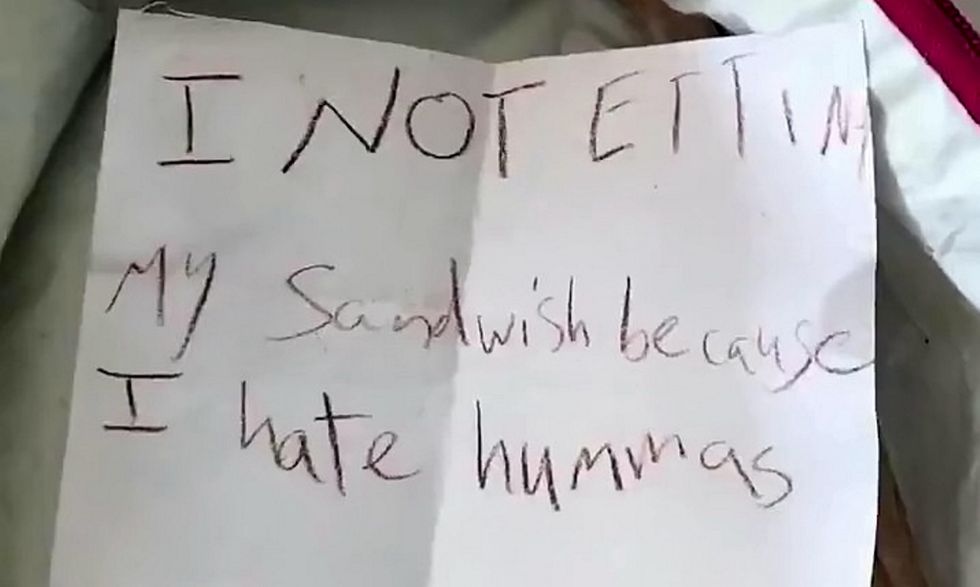 I NOT ETTIN
My Sandwish because
I hate hummas